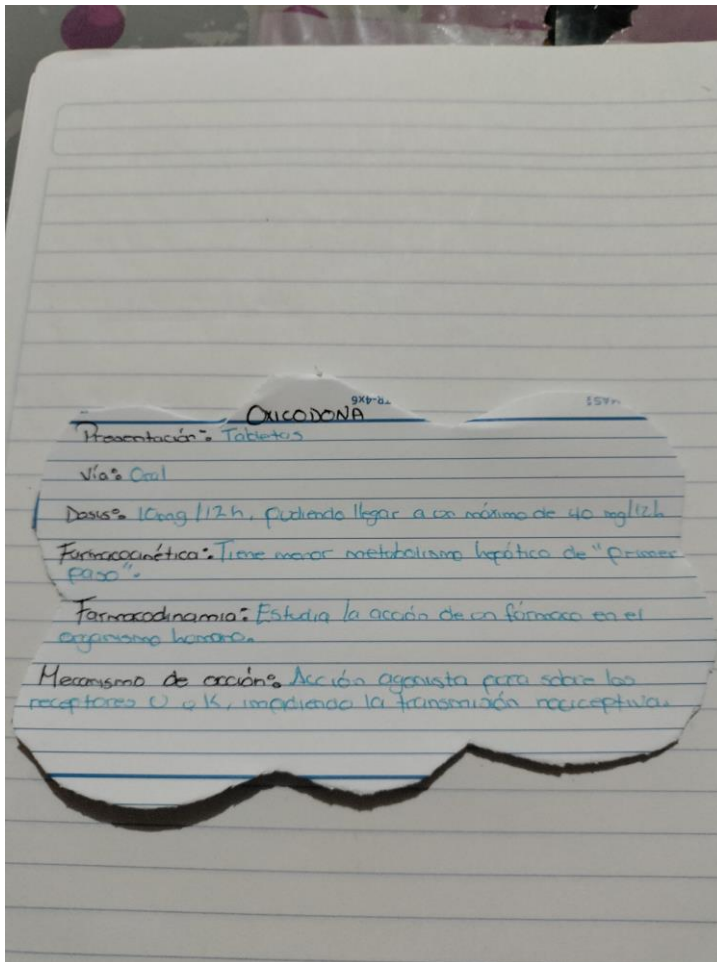 TR-4X6
OXICODONA
Presentación: Tabletas
Vía: Oral
Dosis: 10mg/12h, pudiendo llegar a un máximo de 40 mg/12h
Farmacocinética: Tiene menor metabolismo hepático de "primer
paso".
Farmacodinamia: Estudia la acción de un fármaco en el
organismo humano.
Mecanismo de acción: Acción agonista pura sobre los
receptores U y K, impidiendo la transmisión nociceptiva.